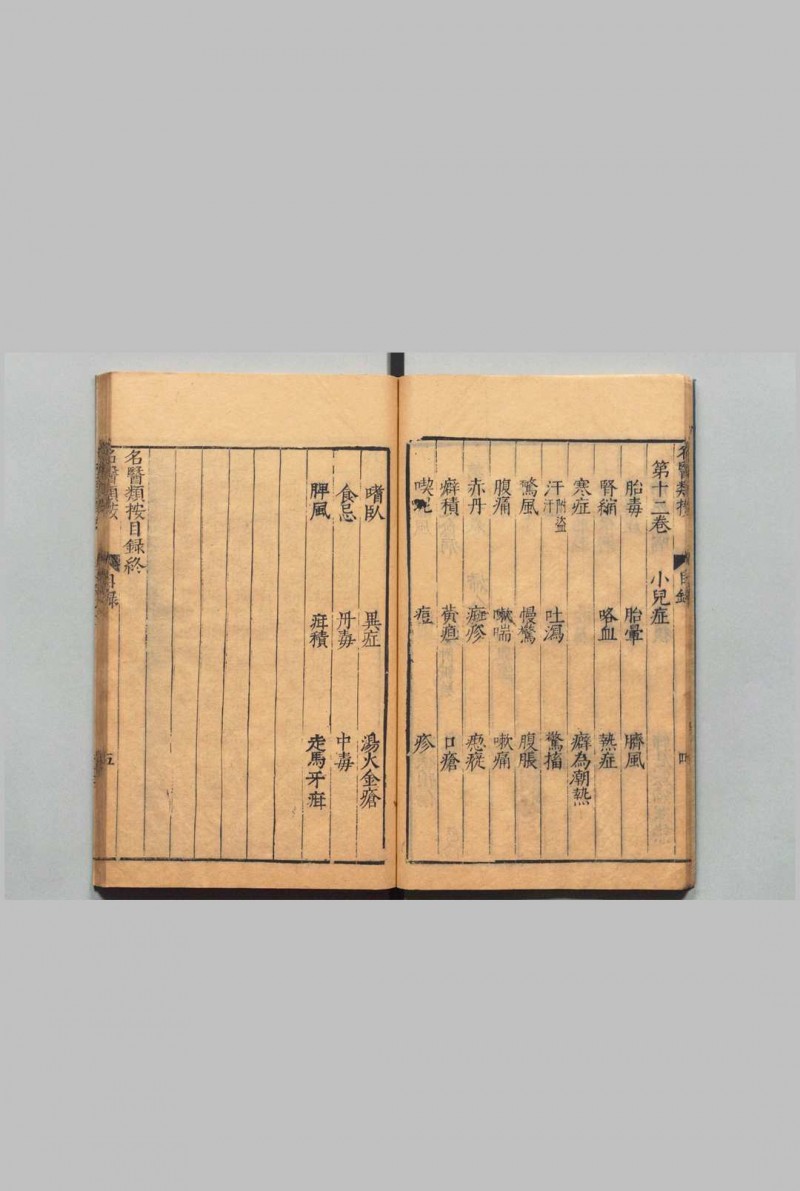 第十二卷 小兒症
胎毒 胎暈 臍風
腎縮 咯血 熱症
寒症 癖為潮熱
汗附盜汗 吐瀉 驚搐
驚風 慢驚 腹脹
腹痛 喘嗽 嗽痛
赤丹 瘢疹
癖積 黃疸 口瘡
喫泥 痘 疹
嗜臥 異症 湯火金瘡
食忌 丹毒 中毒
脾風 疳積 走馬牙疳
名醫類按目録終
名醫類按 目録 五